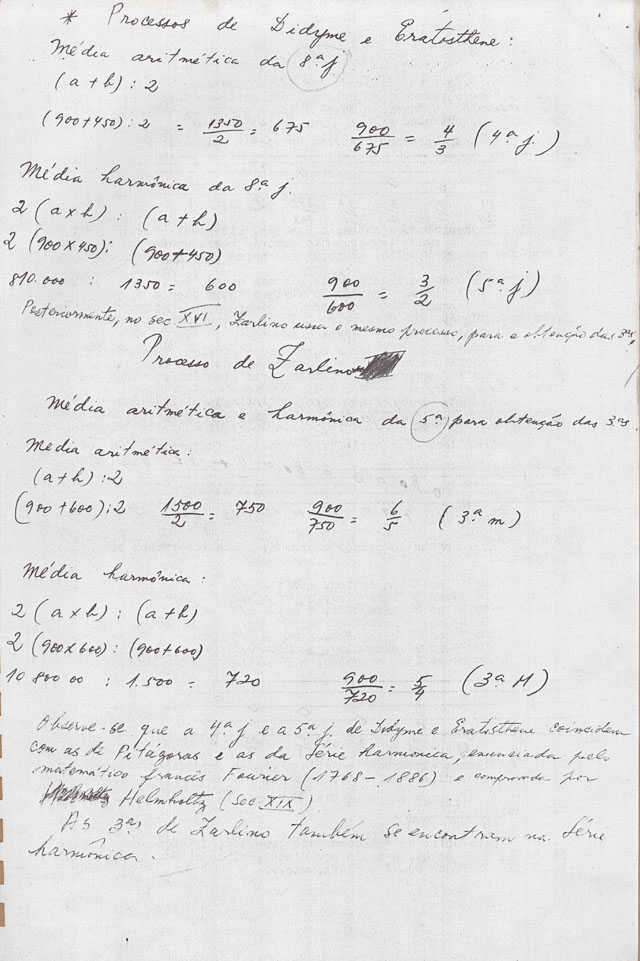 * Processos de Didyme e Eratosthene:
Média aritmética da 8ª j.
(a+h) : 2
(900+450) : 2 = 1350/2 = 675 900/675 = 4/3 (4ª j.)
Média harmônica da 8ª j.
2 (a x h) : (a + h)
2 (900 x 450) : (900+450)
810.000 : 1350 = 600 900/600 = 3/2 (5ª j)
Posteriormente, no sec XVI, Zarlino usa o mesmo processo, para a obtenção das 3ªs,
Processo de Zarlino
Média aritmética e harmônica da 5ª para obtenção das 3ªs
Media aritmética:
(a+h) : 2
(900+600) : 2 1500/2 = 750 900/750 = 6/5 (3ª m)
Média harmônica:
2 (a x h) : (a+h)
2 (900x600) : (900+600)
10 800 00 : 1.500 = 720 900/720 = 5/4 (3ª M)
Observe-se que a 4ª j e a 5ª j. de Didyme e Eratosthene coincidem
com as de Pitágoras e as da Série harmonica, enunciada pelo
matemático francês Fourier (1768-1886) e comprovada por
Helmholtz (sec XIX)
As 3ªs de Zarlino também se encontram na Série
harmônica.